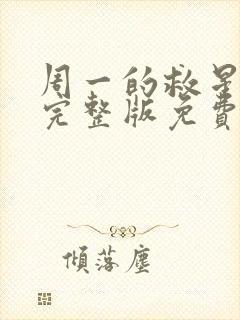 周一的救星
完整版免費
傾落塵